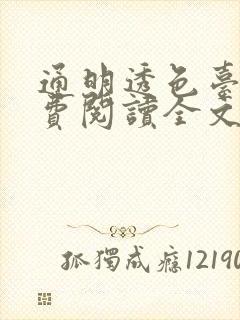 通明透色臺
費閱讀全文
孤獨成癮12190